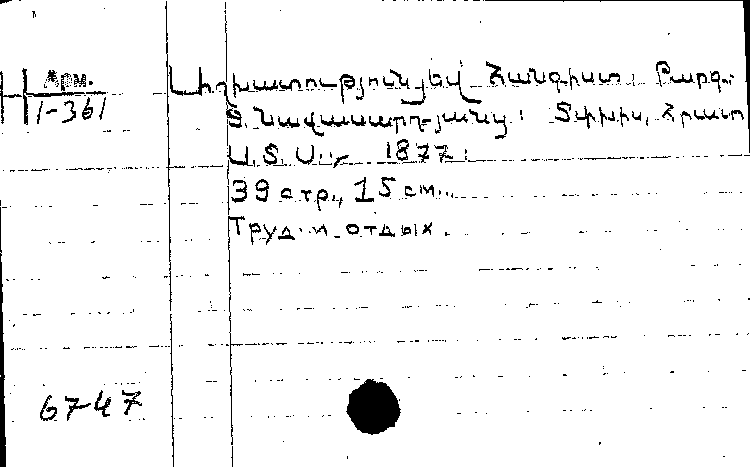 Арм.
1-361
Աշխատություն եվ Հանգիստ: Թարգ.
Տ. Նավասարդյանց: Տփխիս, Հրատ
Ա.Տ.Ս., 1877:
39 стр., 15 см.
Труд и отдых.
67-47